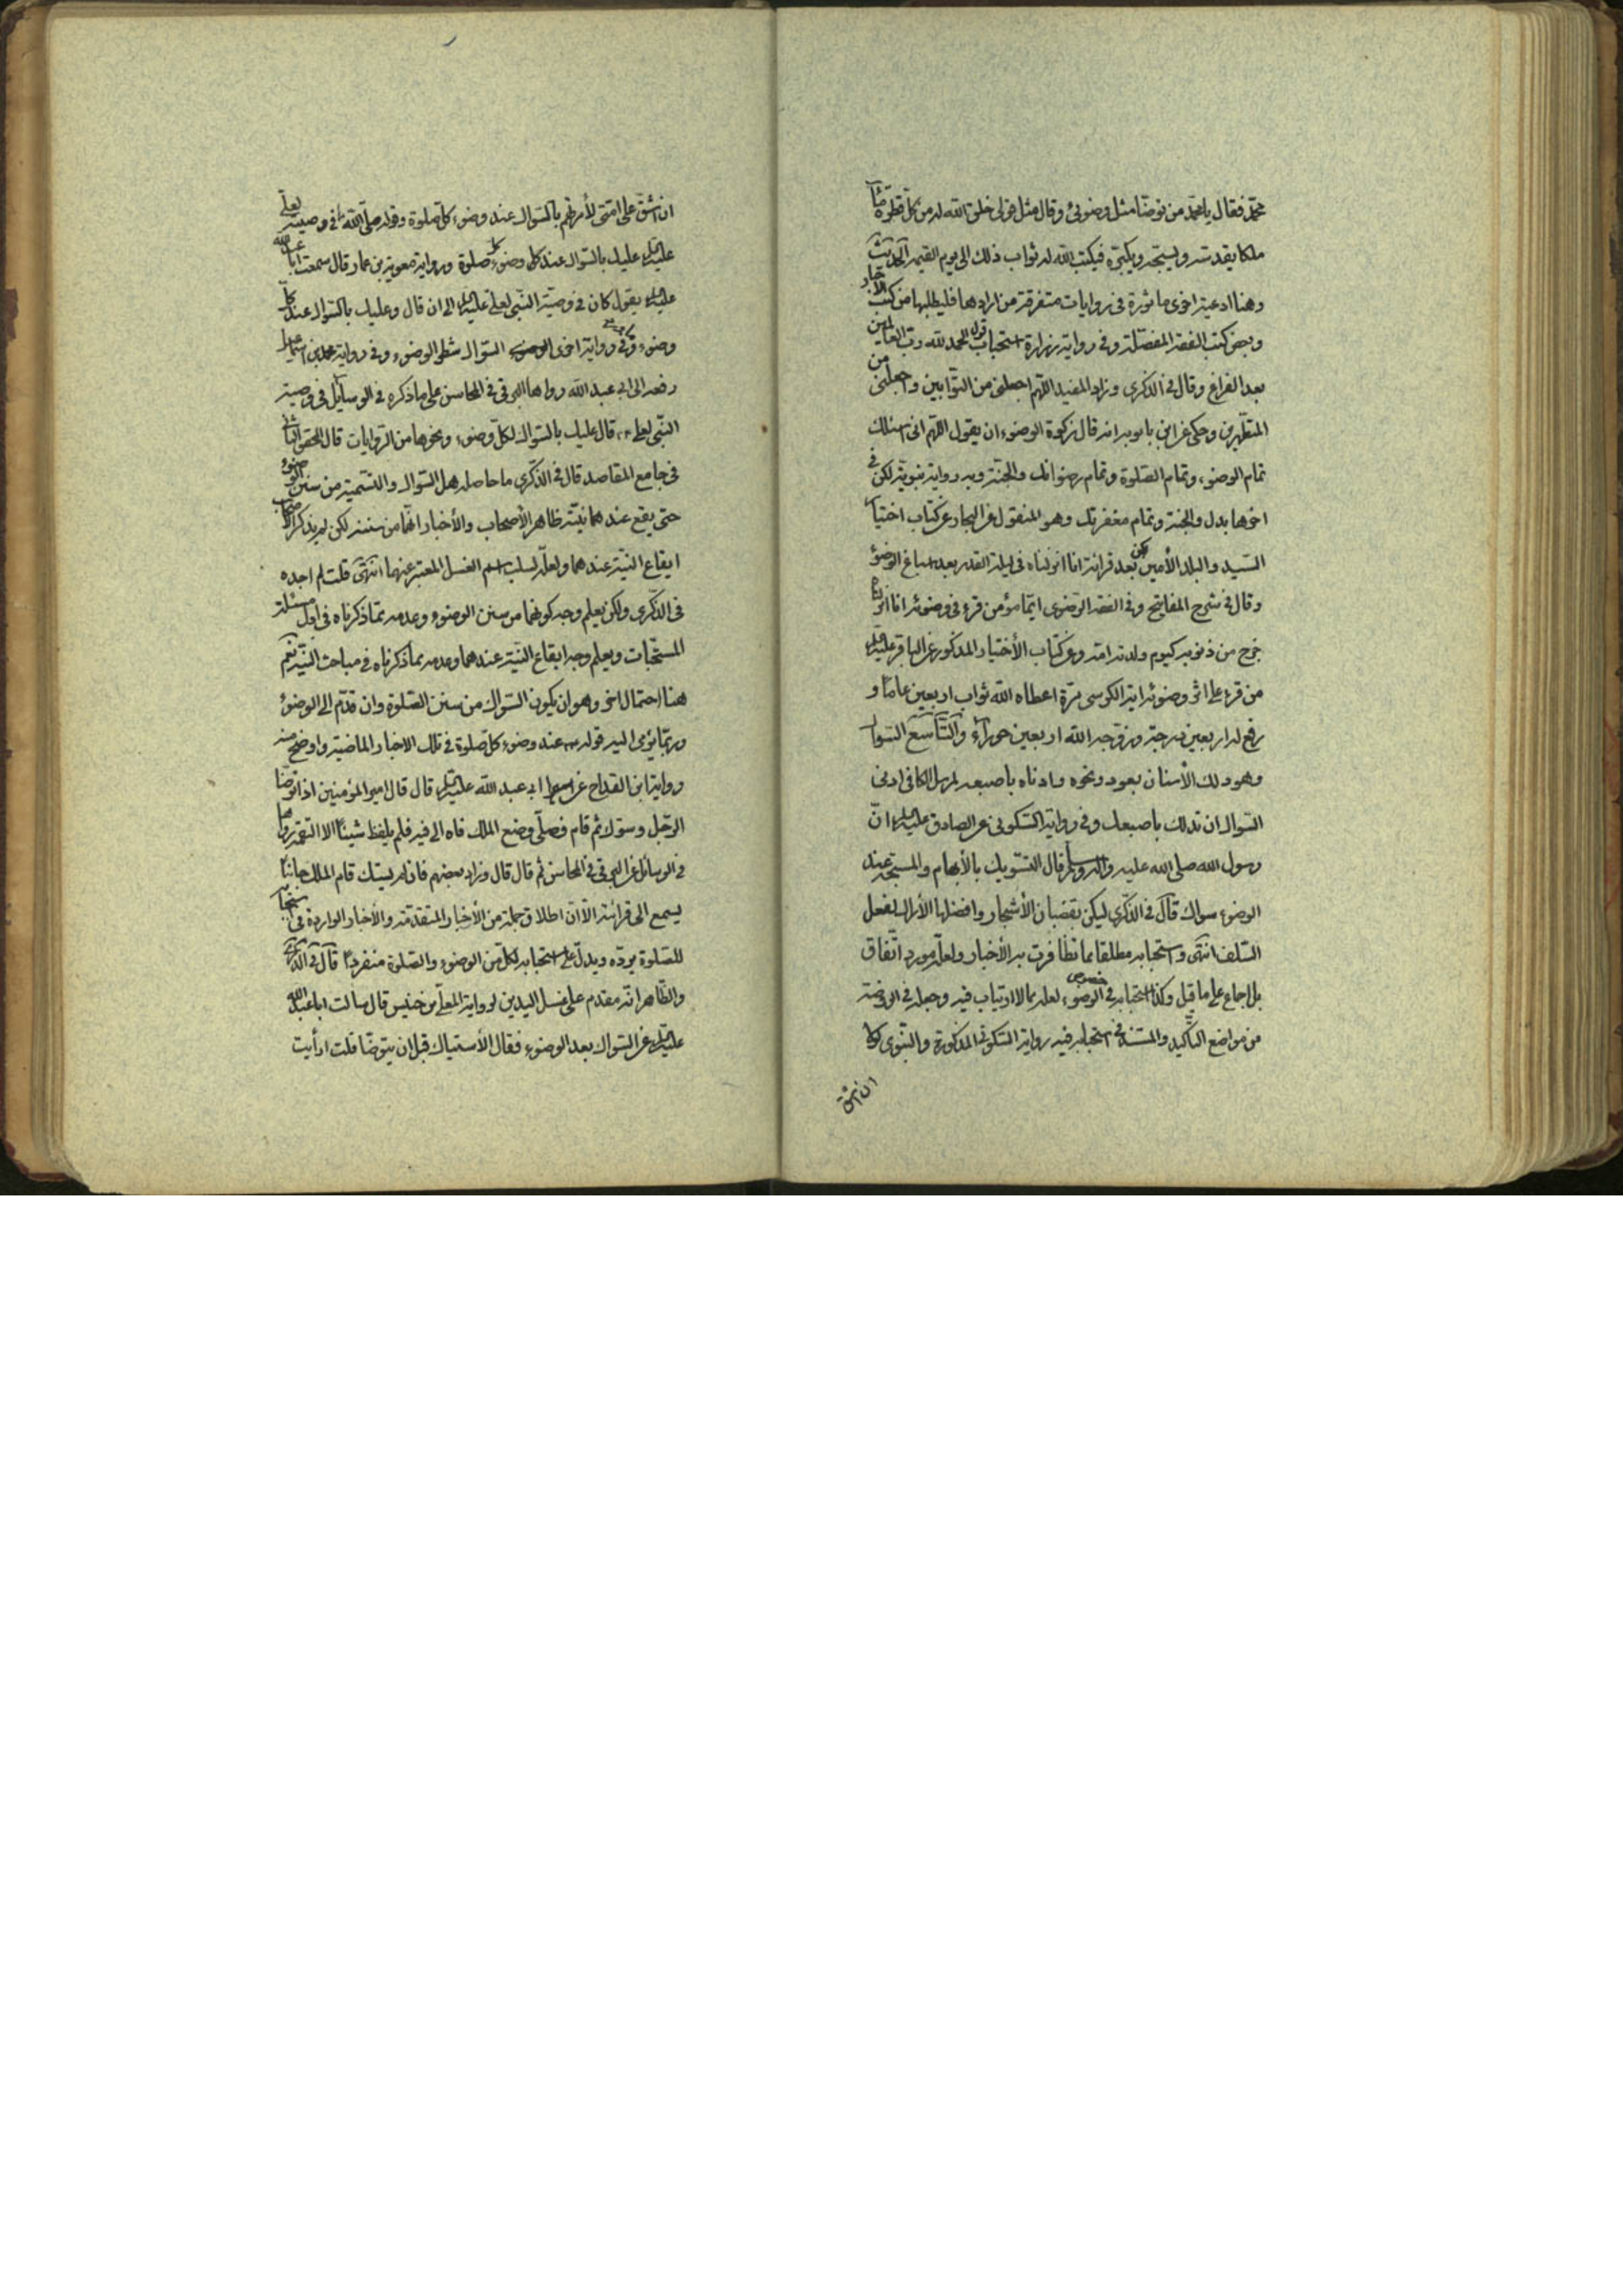 محمّد فقال يا محمّد من توضّأ مثل وضوئى وقال مثل قولى خلق الله له من كلّ قطرة ماء
ملكا يقدّسه ويسبّحه ويكبّره فيكتب الله له ثواب ذلك الى يوم القيمة الحديث
وهنا ادعية اخرى ماثورة فى روايات متفرقة من ارادها فليطلبها من كتب الاخبار
وبعض كتب الفقه المفصّلة وفى رواية زرارة استحباب قول الحمد لله ربّ العالمين
بعد الفراغ وقال فى الذكرى وزاد المفيد اللّهم اجعلنى من التوّابين واجعلنى من
المتطهّرين وحكى عن ابن بابويه انه قال زكوة الوضوء ان يقول اللّهم انى اسئلك
تمام الوضوء وتمام الصّلوة وتمام رضوانك والجنّة وبه رواية نبويّة لكن فى
اخرها بدل والجنة وتمام مغفرتك وهو المنقول عن البحار عن كتاب اختيار
السّيد والبلد الأمين لكن بعد قرائة انا انزلناه فى ليلة القدر بعد اسباغ الوضوء
وقال فى شرح المفاتيح وفى الفقه الرّضوى ايّما مؤمن قرء فى وضوئه انا انزلناه
خرج من ذنوبه كيوم ولدته امّه وعن كتاب الأختيار المذكور عن الباقر عليه السلام
من قرء على اثر وضوئه اية الكرسى مرّة اعطاه الله ثواب اربعين عاما و
رفع له اربعين درجة وزوّجه الله اربعين حوراء والتّاسع السّواك
وهو دلك الأسنان بعود ونحوه وادناه باصبعه لمرسل الكافى ادنى
السّواك ان تدلك باصبعك وفى رواية السّكونى عن الصادق عليه السلام انّ
رسول الله صلى الله عليه واله وسلم قال التّسويك بالأبهام والمسبّحة عند
الوضوء سواك قال فى الذّكرى ليكن بقضبان الأشجار وافضلها الأراك لفعل
السّلف انتهى واستحبابه مطلقا مما تظافرت به الأخبار ولعلّه مورد اتّفاق
بل اجماع على ما قيل وكذا استحبابه فى خصوص الوضوء لعلّه مما لا ارتياب فيه وجعله فى الروضة
من مواضع التأكيد والمستند فى استحبابه فيه رواية السّكونى المذكورة والنّبوى لولا
ان اشقّ
ان اشقّ على امّتى لأمرتهم بالسّواك عند وضوء كلّ صلوة وقوله صلّى الله فى وصيته لعلى
عليه السلام عليك بالسّواك عند كل وضوء كل صلوة ورواية معوية بن عمار قال سمعت ابا عبد الله
عليه السلام يقول كان فى وصيّة النّبى لعلىّ عليه السلام الى ان قال وعليك بالسّواك عند كلّ
وضوء وفى رواية اخرى السّواك شطر الوضوء وفى رواية محمد بن اسماعيل
رفعه الى ابى عبد الله رواها البرقى فى المحاسن على ما ذكره فى الوسائل فى وصية
النّبى لعلى قال عليك بالسّواك لكلّ وضوء ونحوها من الرّوايات قال المحقق الثانى
فى جامع المقاصد قال فى الذّكرى ما حاصله هل السّواك والتّسمية من سنن الوضوء
حتى يقع عندهما نيّته ظاهر الأصحاب والأخبار انّهما من سننه لكن لم يذكر الاصحاب
ايقاع النّية عندهما ولعلّه لسلب اسم الغسل المعتبر عنهما انتهى قلت لم اجده
فى الذّكرى ولكن يعلم وجه كونهما من سنن الوضوء وعدمه ممّا ذكرناه فى اول مسئلة
المستحبّات ويعلم وجه ايقاع النّية عندهما وعدمه مما ذكرناه فى مباحث النّية نعم
هنا احتمال اخر وهو ان يكون السّواك من سنن الصّلوة وان قدّم الى الوضوء
وربّما يؤمى اليه قوله عند وضوء كلّ صلوة فى تلك الاخبار الماضية واوضح منه
رواية ابن القداح عن ابى عبد الله عليه السلام قال قال امير المؤمنين اذا توضّأ
الرّجل وسوّك ثم قام فصلّى وضع الملك فاه الى فيه فلم يلفظ شيئا الا التقمه رواها
فى الوسائل عن البرقى فى المحاسن ثم قال قال وزاد بعضهم فان لم يستك قام الملك جانبا
يسمع الى قرائته الّا انّ اطلاق جملة من الأخبار المتقدّمة والأخبار الواردة فى استحبابه
للصّلوة يردّه ويدلّ على استحبابه لكلّ من الوضوء والصّلوة منفردا قال فى الذكرى
والظّاهر انّه مقدم على غسل اليدين لرواية المعلّى بن خنيس قال سالت ابا عبد الله
عليه السلام عن السّواك بعد الوضوء فقال الأستياك قبل ان يتوضّأ قلت ارأيت